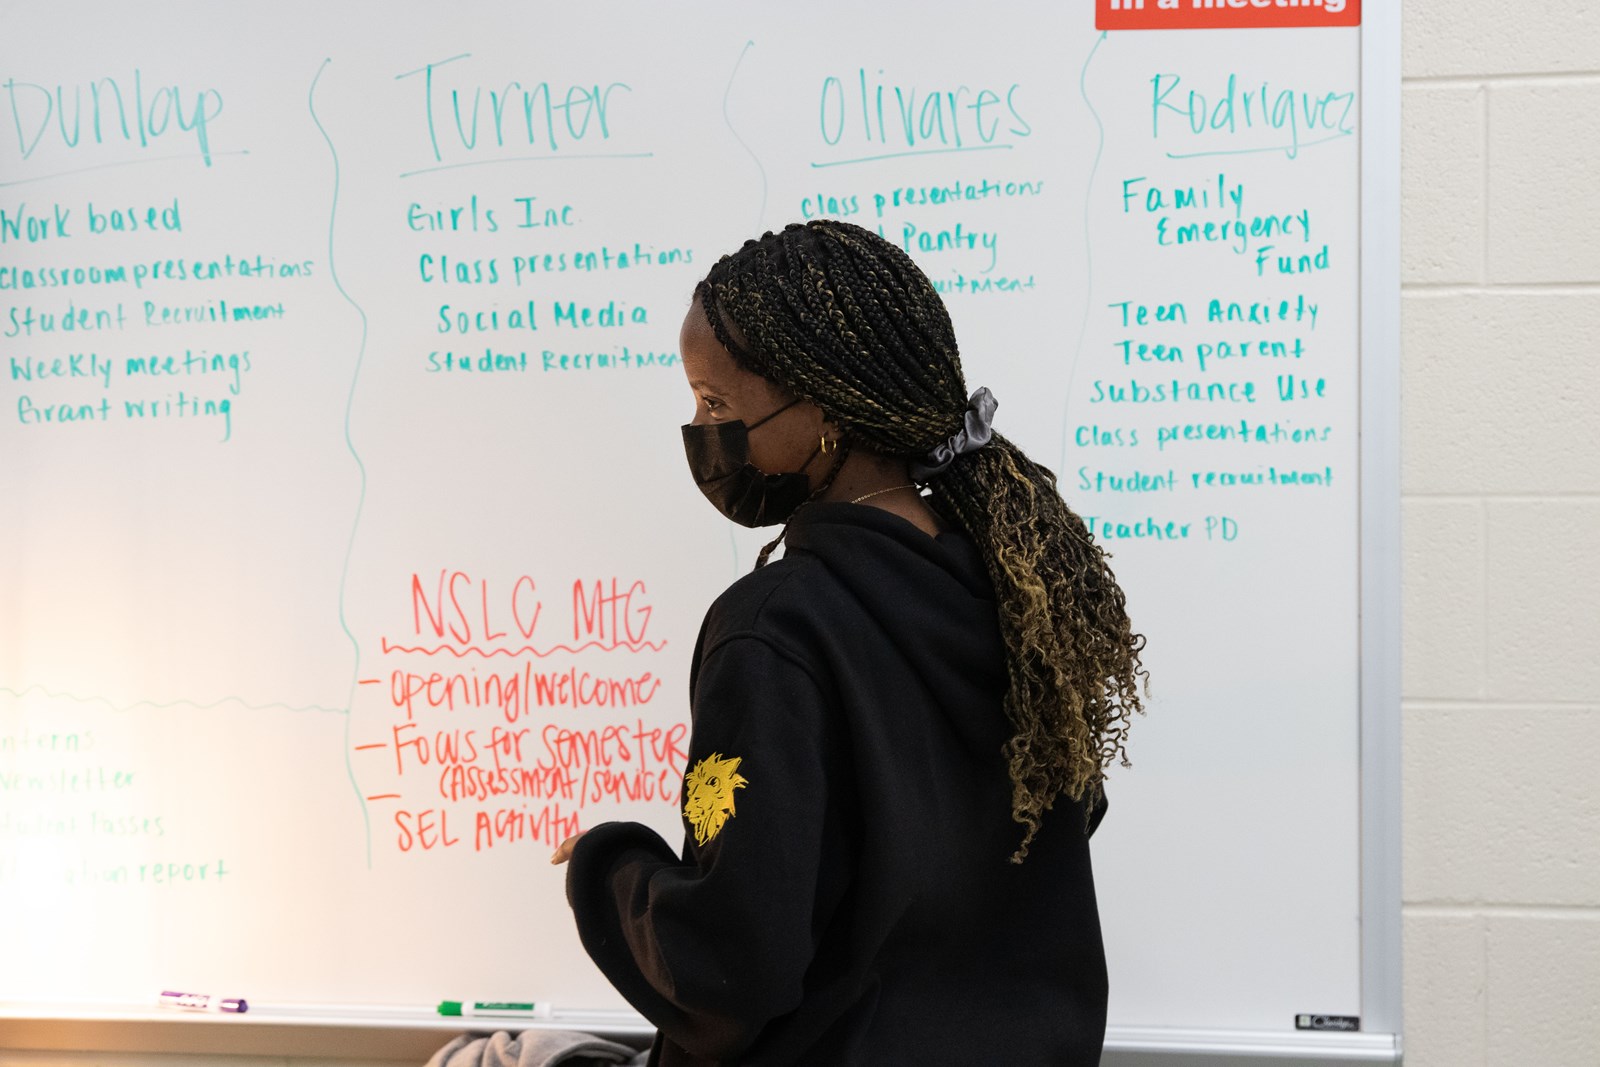 in a meeting
Dunlap
Work based
Classroom presentations
Student Recruitment
Weekly meetings
Grant writing
Newsletter
report
Turner
Girls Inc.
Class presentations
Social Media
Student Recruitmen
NSLC MtG
- opening/welcome
- Focus for semester
(Assessment/service)
- SEL Activity
Olivares
Class presentations
Pantry
uitment
Rodriguez
Family
Emergency
Fund
Teen Anxiety
Teen parent
Substance Use
Class presentations
Student recruitment
Teacher PD